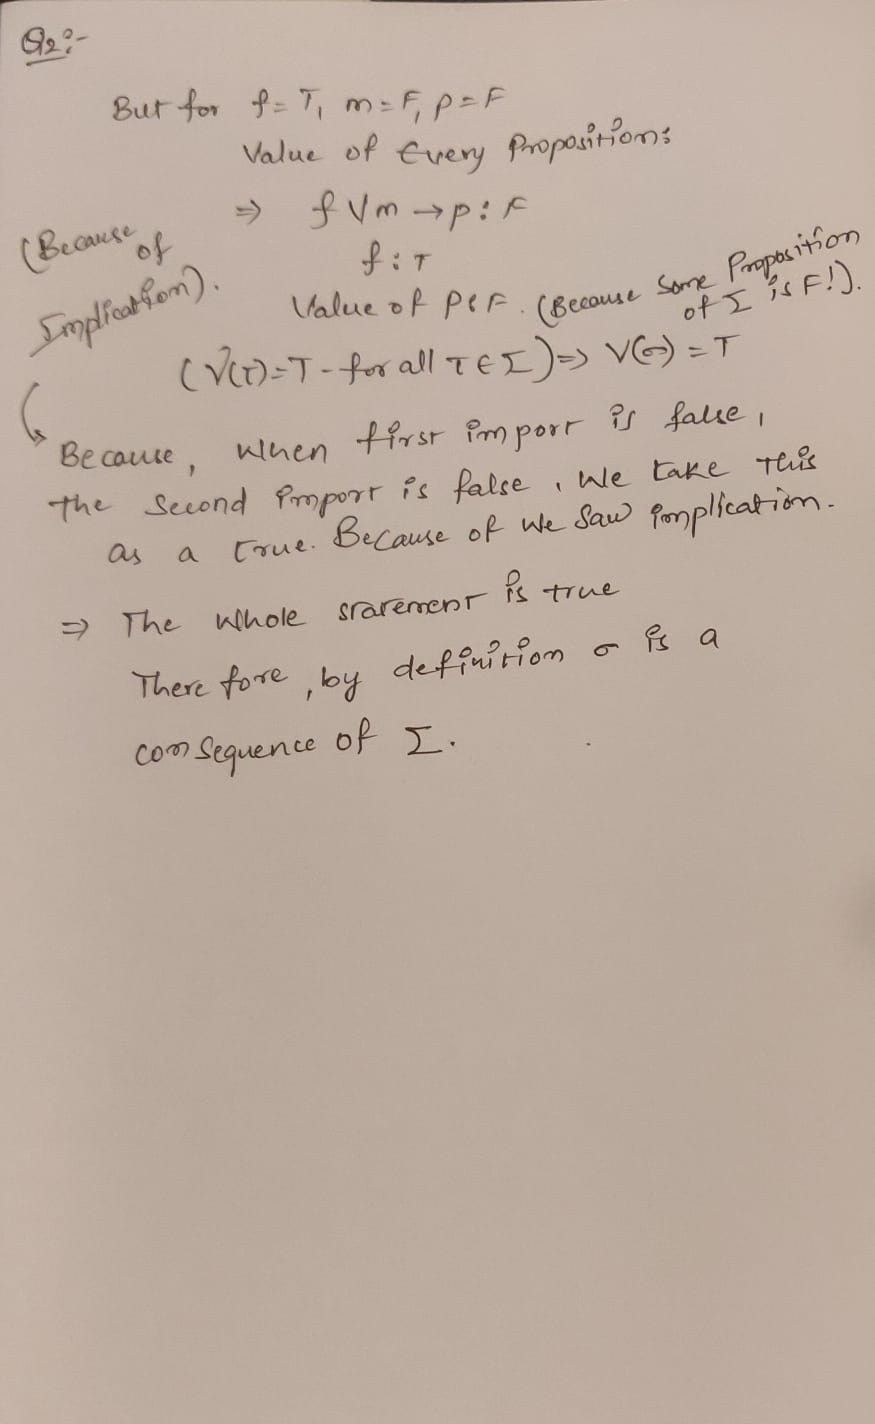 Q2:-
But for f = T, m = F, p = F
Value of Every Propositions
⇒ f ∨ m → p : F
(Because of
Implication).
f : T
Value of P is F. (Because Some Proposition
of Σ is F!).
(V(τ) = T - for all τ ∈ Σ) ⇒ V(σ) = T
Because, when first import is false,
the second import is false, we take this
as a true. Because of we saw implication.
⇒ The whole statement is true
There fore, by definition σ is a
consequence of Σ.